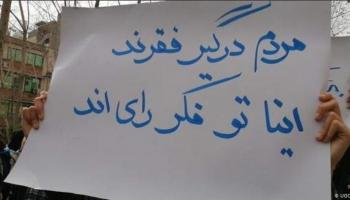 مردم درگیر فقرند
اینا تو فکر رای اند
UGC